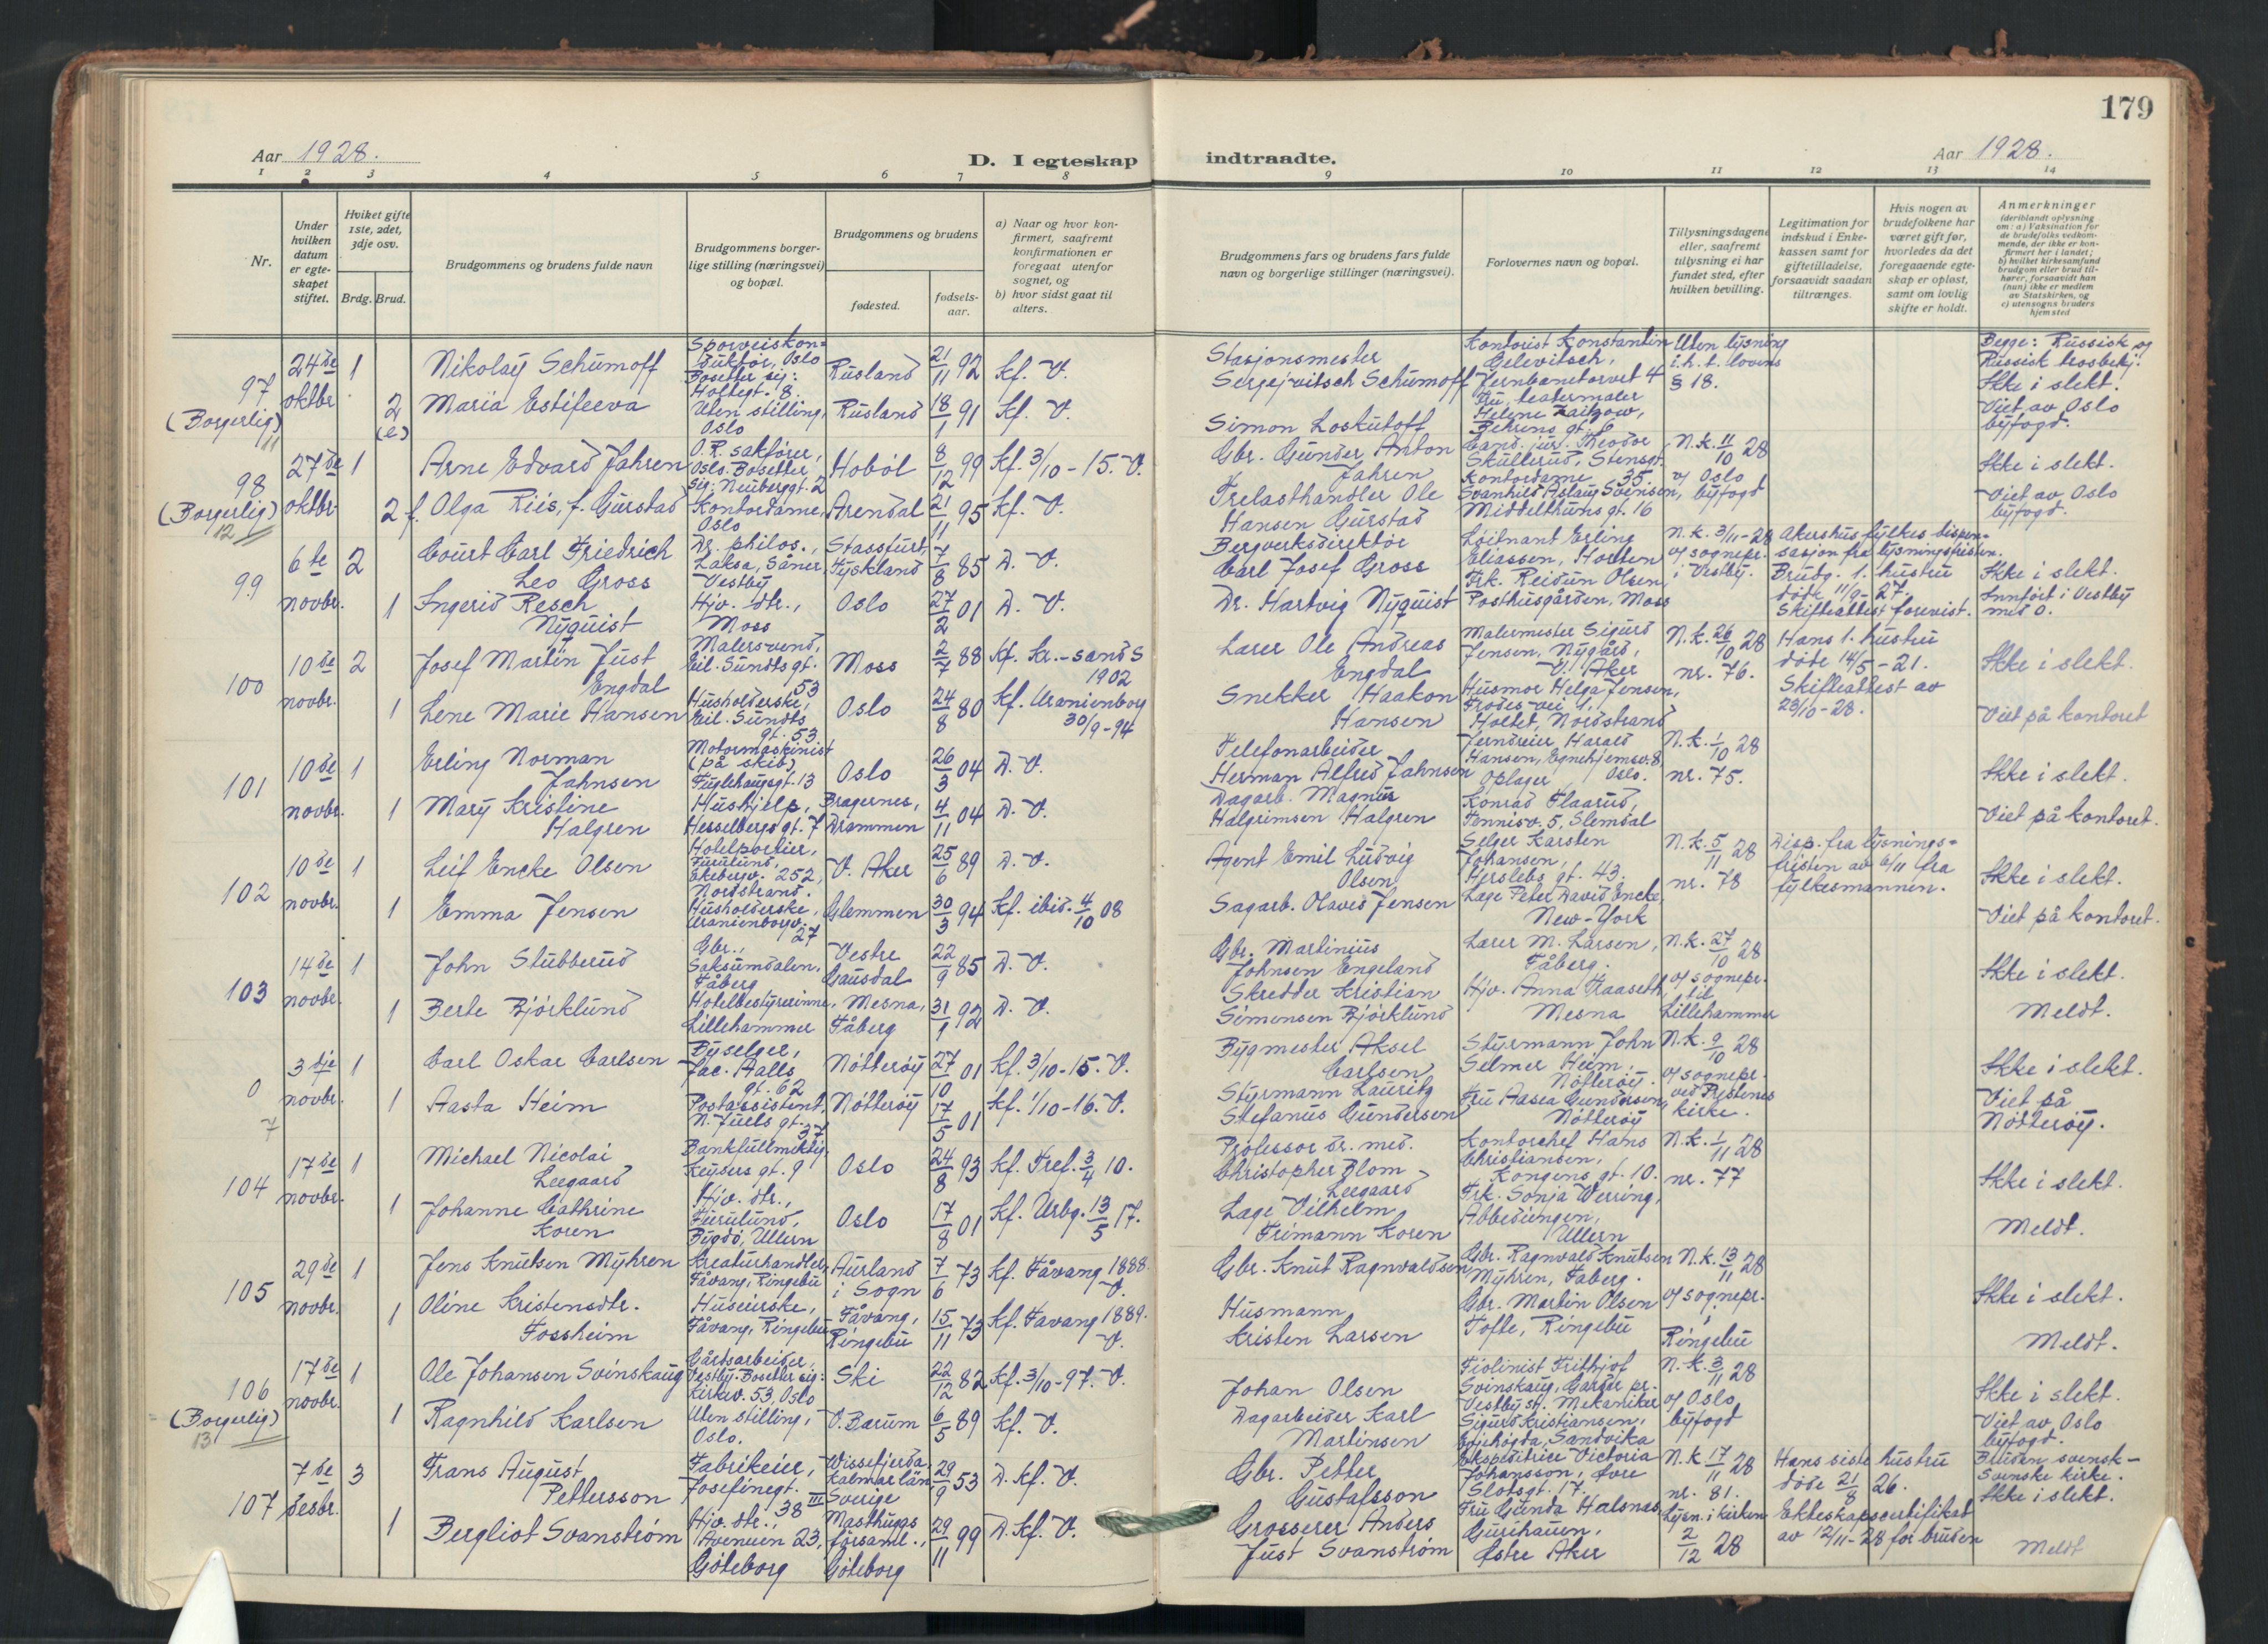 179
Aar 1928.
D. I egteskap
indtraadte.
Aar 1928.
1 2 3 4 5 6 7 8 9 10 11 12 13 14
Nr.
Under hvilken datum er egteskapet stiftet.
Hviket gifte 1ste, 2det, 3dje osv.
Brdg. Brud.
Brudgommens og brudens fulde navn
Brudgommens borgerlige stilling (næringsvei) og bopæl.
Brudgommens og brudens
fødested.
fødselsaar.
a) Naar og hvor konfirmert, saafremt konfirmationen er foregaat utenfor sognet, og
b) hvor sidst gaat til alters.
Brudgommens fars og brudens fars fulde navn og borgerlige stillinger (næringsvei).
Forlovernes navn og bopæl.
Tillysningsdagene eller, saafremt tillysning ei har fundet sted, efter hvilken bevilling.
Legitimation for indskud i Enkekassen samt for giftetilladelse, forsaavidt saadan tiltrænges.
Hvis nogen av brudefolkene har været gift før, hvorledes da det foregaaende egteskap er opløst, samt om lovlig skifte er holdt.
Anmerkninger
(deriblandt oplysning om: a) Vaksination for de brudefolks vedkommende, der ikke er konfirmert her i landet; b) hvilket kirkesamfund brudgom eller brud tilhører, forsaavidt han (hun) ikke er medlem av Statskirken, og c) utensogns bruders hjemsted
97 (Borgerlig) 11
24de oktbr. 1
Nikolay Schumoff
Sporveiskonduktør, Oslo
Bosetter sig: Holtegt. 8.
Rusland 21/11 92 Kf. V.
Stasjonsmester
Sergejvitsch Schumoff
Kontorist Konstantin
Gelevitsch,
Jernbanetorvet 4
Uten lysning
i.h.t. lovens
§ 18.
Begge: Russisk og
Russisk trosbekj.
Ikke i slekt.
2 (e)
Maria Estifeeva
Uten stilling,
Oslo
Rusland 18/1 91 Kf. V.
Simon Loskutoff
Fru, teatermaler
Helene Zaitzow,
Behrens gt. 6
Viet av Oslo
byfogd.
98 (Borgerlig) 12
27de oktbr. 1
Arne Edvard Jahren
O.R. sakfører,
Oslo. Bosetter
sig: Neuberggt. 2
Hobøl 8/12 99 Kf. 3/10-15. V.
Gbr. Gunder Anton
Jahren
Cand. jur. Theodor
Skullerud, Stensgt.
35.
N.k. 11/10 28
v/ Oslo
byfogd
Ikke i slekt.
2 f.
Olga Riis, f. Gurstad
Kontordame,
Oslo
Arendal 21/11 95 Kf. V.
Trelasthandler Ole
Hansen Gurstad
Kontordame
Svanhild Aslaug Svensen,
Middelthuns gt. 16
Viet av Oslo
byfogd.
99
6te novbr. 2
Court Carl Friedrich
Leo Gross
Dr. philos.,
Laksa, Såner,
Vestby
Stassfurt,
Tyskland
7/8 85 D. V.
Bergverksdirektør
Carl Josef Gross
Løitnant Erling
Eliassen, Holtten
N.k. 3/11-28
v/ sognepr.
i Vestby.
Akershus fylkes dispensasjon fra lysningsfristen.
Brudg. 1. hustru
døde 11/9-27.
Skifteattest forevist.
Ikke i slekt.
1
Ingerid Resch
Nyquist
Hjv. dtr.,
Moss
Oslo 27/2 01 D. V.
Dr. Hartvig Nyquist
Frk. Reidun Olsen,
Posthusgården, Moss
Innført i Vestby
med 0.
100
10de novbr. 2
Josef Martin Just
Engdal
Malersvend,
Eil. Sundts gt.
53
Moss 2/7 88 Kf. Kr.-sand S
1902
Lærer Ole Andreas
Engdal
Malermester Sigurd
Jensen, Nygård,
V. Aker
N.k. 26/10 28
nr. 76.
Hans 1. hustru
døde 14/5-21.
Skifteattest av
23/10-28.
Ikke i slekt.
1
Lene Marie Hansen
Husholderske,
Eil. Sundts
gt. 53
Oslo 24/8 80 Kf. Uranienborg
30/9-94
Snekker Haakon
Hansen
Husmor Helga Jensen,
Frodes vei 1,
Holtet, Nordstrand
Viet på kontoret
101
10de novbr. 1
Erling Norman
Jahnsen
Motormaskinist
(på skib)
Fuglehauggt. 13
Oslo 26/3 04 D. V.
Telefonarbeider
Herman Alfred Jahnsen
Jerndreier Harald
Hansen, Egnehjemsv. 8
Oslo.
N.k. 1/10 28
nr. 75.
Ikke i slekt.
1
Mary Kristine
Halgren
Hushjelp,
Hesselbergs gt. 7
Bragernes,
Drammen
4/11 04 D. V.
Dagarb. Magnus
Halgrimsen Halgren
Oplager
Konrad Flaarud,
Tennisv. 5, Slemdal
Viet på kontoret.
102
10de novbr. 1
Leif Encke Olsen
Hotelportier,
Furulund,
Ekebergv. 252,
Nordstrand.
V. Aker 25/6 89 D. V.
Agent Emil Ludvig
Olsen
Selger Karsten
Johansen,
Herslebs gt. 43.
N.k. 5/11 28
nr. 78
Disp. fra lysningsfristen av 6/11 fra
fylkesmannen.
Ikke i slekt.
1
Emma Jensen
Husholderske,
Uranienborgv.
27
Glemmen 30/3 94 Kf. ibid. 4/10 08
Sagarb. Olaves Jensen
Læge Peter David Encke,
New-York
Viet på kontoret.
103
14de novbr. 1
John Stubberud
Gbr.,
Saksumdalen,
Fåberg
Vestre
Gausdal
22/9 85 D. V.
Gbr. Martinius
Johnsen Engeland
Lærer M. Larsen,
Fåberg.
N.k. 27/10 28
v/ sognepr.
til
Lillehammer
Ikke i slekt.
1
Berte Bjørklund
Hotelbestyrerinne,
Lillehammer
Mesna,
Fåberg
31/1 92 D. V.
Skredder Kristian
Simensen Bjørklund
Hjv. Anna Traaseth,
Mesna
Meldt.
0
7
3dje novbr. 1
Carl Oskar Carlsen
Byselger,
Jac. Aalls
gt. 62
Nøtterøy 27/10 01 Kf. 3/10-15. V.
Bygmester Aksel
Carlsen
Styrmann John
Selmer Heim
Nøtterøy.
N.k. 9/10 28
v/ sognepr.
ved Frelsenes
kirke.
Ikke i slekt.
1
Aasta Heim
Postassistent,
N. Juels gt.
37
Nøtterøy 17/5 01 Kf. 1/10-16. V.
Styrmann Lauritz
Stefanus Gundersen
Fru Aasea Gundersen,
Nøtterøy
Viet på
Nøtterøy.
104
17de novbr. 1
Michael Nicolai
Leegaard
Bankfullmektig,
Keysers gt. 9
Oslo 24/8 93 Kf. Tref. 3/4 10.
Professor dr. med.
Christopher Blom
Leegaard
Kontorchef Hans
Christiansen,
Kongens gt. 10.
N.k. 1/11 28
nr. 77
Ikke i slekt.
1
Johanne Cathrine
Koren
Hjv. dtr.,
Furulund,
Bygdø, Ullern
Oslo 17/8 01 Kf. Urbg. 13/5 17.
Læge Vilhelm
Frimann Koren
Frk. Sonja Werring,
Abbediengen,
Ullern
Meldt.
105
29de novbr. 1
Jens Knutsen Myhren
Kreaturhandler,
Fåvang, Ringebu
Aurland
i Sogn
7/6 73 Kf. Fåvang 1888.
V.
Gbr. Knut Ragnvaldsen
Gbr. Ragnvald Knutsen
Myhren, Faberg.
N.k. 13/11 28
v/ sognepr.
i
Ringebu
Ikke i slekt.
1
Oline Kristensdtr.
Fossheim
Huseierske,
Fåvang, Ringebu
Fåvang,
Ringebu
15/11 73 Kf. Favang 1889.
V.
Husmann
Kristen Larsen
Gbr. Martin Olsen
Tofte, Ringebu
Meldt.
106 (Borgerlig) 13
17de novbr. 1
Ole Johansen Svinskaug
Gårdsarbeider,
Vestby. Bosetter sig:
Kirkev. 53, Oslo
Ski 22/12 82 Kf. 3/10-97. V.
Johan Olsen
Fiolinist Frithjof
Svinskaug, Garder pr.
Vestby st.
N.k. 3/11 28
v/ Oslo
byfogd
Ikke i slekt.
1
Ragnhild Karlsen
Uten stilling,
Oslo.
V. Bærum 6/5 89 Kf. V.
Dagarbeider Karl
Martinsen
Mekaniker
Sigurd Kristiansen,
Sandvika
Viet av Oslo
byfogd.
107
7de desbr. 3
Frans August
Pettersson
Fabrikeier,
Josefinegt.
38 III
Wissefjerda,
Kalmar län,
Sverige
29/9 53 D. Kf. V.
Gbr. Petter
Gustafsson
Ekspeditrice Victoria
Johansson, Øvre
Slotsgt. 17.
N.k. 17/11 28
nr. 81.
Hans siste hustru
døde 21/8 26.
Bruden svensk-
Svenske kirke.
Ikke i slekt.
1
Bergliot Svanstrøm
Hjv. dtr.,
Avenuen 23,
Göteborg
Masthuggs
församl.,
Göteborg
29/11 99 D. Kf. V.
Grosserer Anders
Just Svanstrøm
Fru Gunda Halsnæs,
Østre Aker
Lysn. i kirken
2/12 28
Ekteskapscertifikat
av 12/11-28 for bruden
Meldt